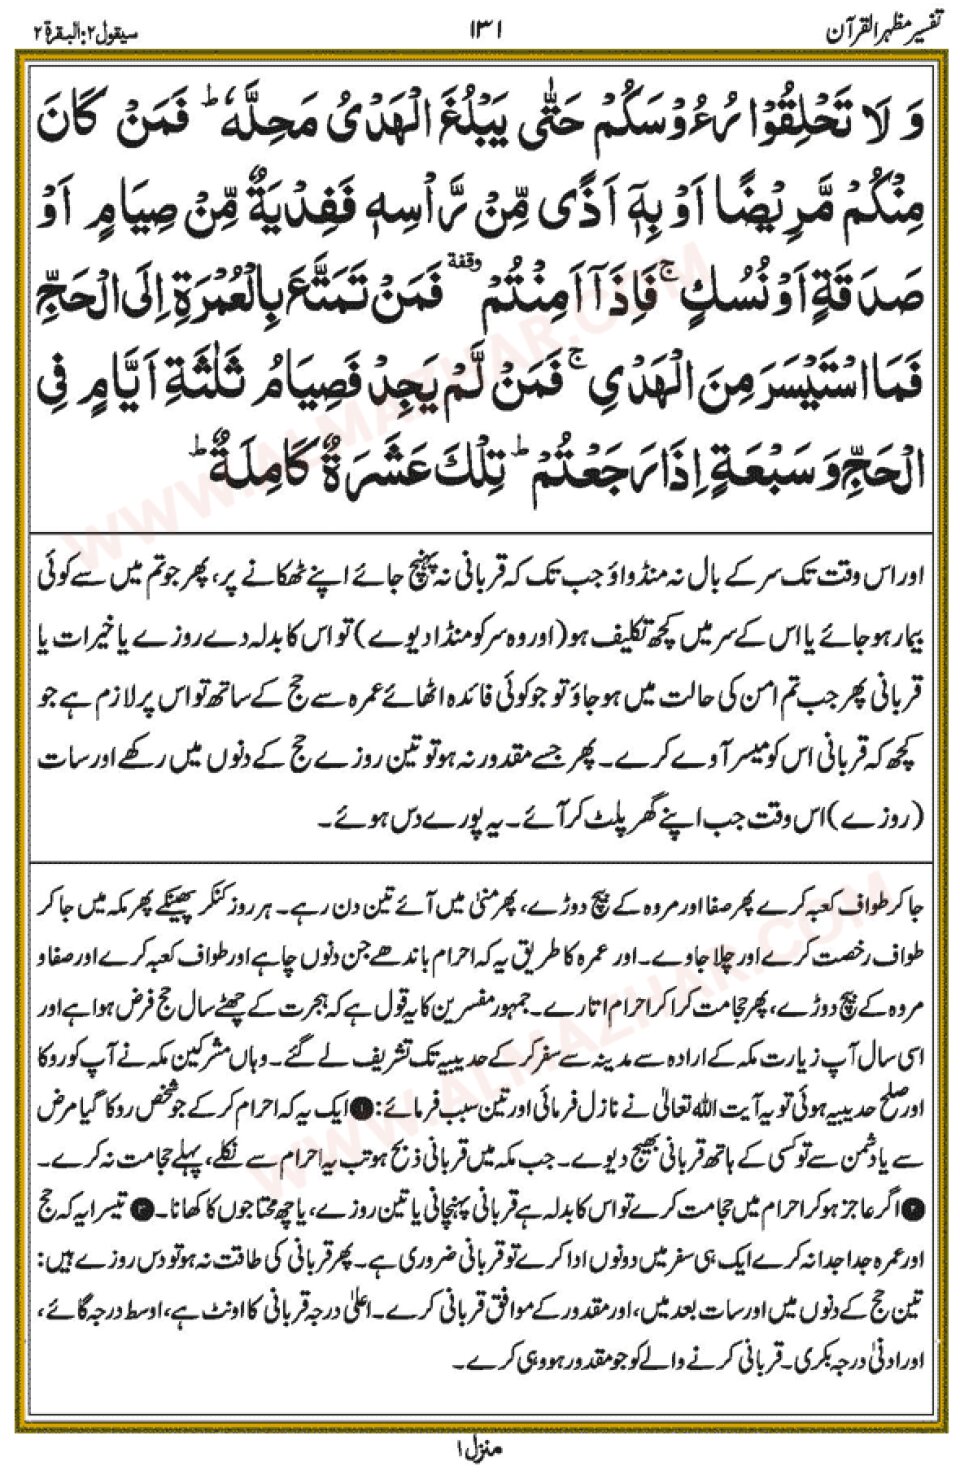 تفسیر مظہر القرآن
۱۳۱
سیقول ۲: البقرة ۲
وَ لَا تَحْلِقُوْا رُءُوْسَكُمْ حَتّٰى يَبْلُغَ الْهَدْىُ مَحِلَّهٗ ؕ فَمَنْ كَانَ
مِنْكُمْ مَّرِيْضًا اَوْ بِهٖۤ اَذًى مِّنْ رَّاْسِهٖ فَفِدْيَةٌ مِّنْ صِيَامٍ اَوْ
صَدَقَةٍ اَوْ نُسُكٍ ۚ فَاِذَاۤ اَمِنْتُمْ وقفة فَمَنْ تَمَتَّعَ بِالْعُمْرَةِ اِلَى الْحَجِّ
فَمَا اسْتَيْسَرَ مِنَ الْهَدْىِ ۚ فَمَنْ لَّمْ يَجِدْ فَصِيَامُ ثَلٰثَةِ اَيَّامٍ فِى
الْحَجِّ وَ سَبْعَةٍ اِذَا رَجَعْتُمْ ؕ تِلْكَ عَشَرَةٌ كَامِلَةٌ ؕ
اور اس وقت تک سر کے بال نہ منڈواؤ جب تک کہ قربانی نہ پہنچ جائے اپنے ٹھکانے پر، پھر جو تم میں سے کوئی
بیمار ہو جائے یا اس کے سر میں کچھ تکلیف ہو (اور وہ سر کو منڈا دیوے) تو اس کا بدلہ دے روزے یا خیرات یا
قربانی پھر جب تم امن کی حالت میں ہو جاؤ تو جو کوئی فائدہ اٹھائے عمرہ سے حج کے ساتھ تو اس پر لازم ہے جو
کچھ کہ قربانی اس کو میسر آوے کرے۔ پھر جسے مقدور نہ ہو تو تین روزے حج کے دنوں میں رکھے اور سات
(روزے) اس وقت جب اپنے گھر پلٹ کر آئے۔ یہ پورے دس ہوئے۔
جا کر طواف کعبہ کرے پھر صفا اور مروہ کے بیچ دوڑے، پھر منیٰ میں آئے تین دن رہے۔ ہر روز کنکر پھینکے پھر مکہ میں جا کر
طواف رخصت کرے اور چلا جاوے۔ اور عمرہ کا طریق یہ کہ احرام باندھے جن دنوں چاہے اور طواف کعبہ کرے اور صفا و
مروہ کے بیچ دوڑے، پھر حجامت کرا کر احرام اتارے۔ جمہور مفسرین کا یہ قول ہے کہ ہجرت کے چھٹے سال حج فرض ہوا ہے اور
اسی سال آپ زیارت مکہ کے ارادہ سے مدینہ سے سفر کر کے حدیبیہ تک تشریف لے گئے۔ وہاں مشرکین مکہ نے آپ کو روکا
اور صلح حدیبیہ ہوئی تو یہ آیت اللہ تعالیٰ نے نازل فرمائی اور تین سبب فرمائے: ❶ ایک یہ کہ احرام کر کے جو شخص روکا گیا مرض
سے یا دشمن سے تو کسی کے ہاتھ قربانی بھیج دیوے۔ جب مکہ میں قربانی ذبح ہو تب یہ احرام سے نکلے، پہلے حجامت نہ کرے۔
❷ اگر عاجز ہو کر احرام میں حجامت کرے تو اس کا بدلہ ہے قربانی پہنچانی یا تین روزے، یا چھ محتاجوں کا کھانا۔ ❸ تیسرا یہ کہ حج
اور عمرہ جدا جدا نہ کرے ایک ہی سفر میں دونوں ادا کرے تو قربانی ضروری ہے۔ پھر قربانی کی طاقت نہ ہو تو دس روزے ہیں:
تین حج کے دنوں میں اور سات بعد میں، اور مقدور کے موافق قربانی کرے۔ اعلیٰ درجہ قربانی کا اونٹ ہے، اوسط درجہ گائے،
اور ادنیٰ درجہ بکری۔ قربانی کرنے والے کو جو مقدور ہو وہی کرے۔
منزل ۱
WWW.ALMAZHAR.COM
WWW.ALMAZHAR.COM